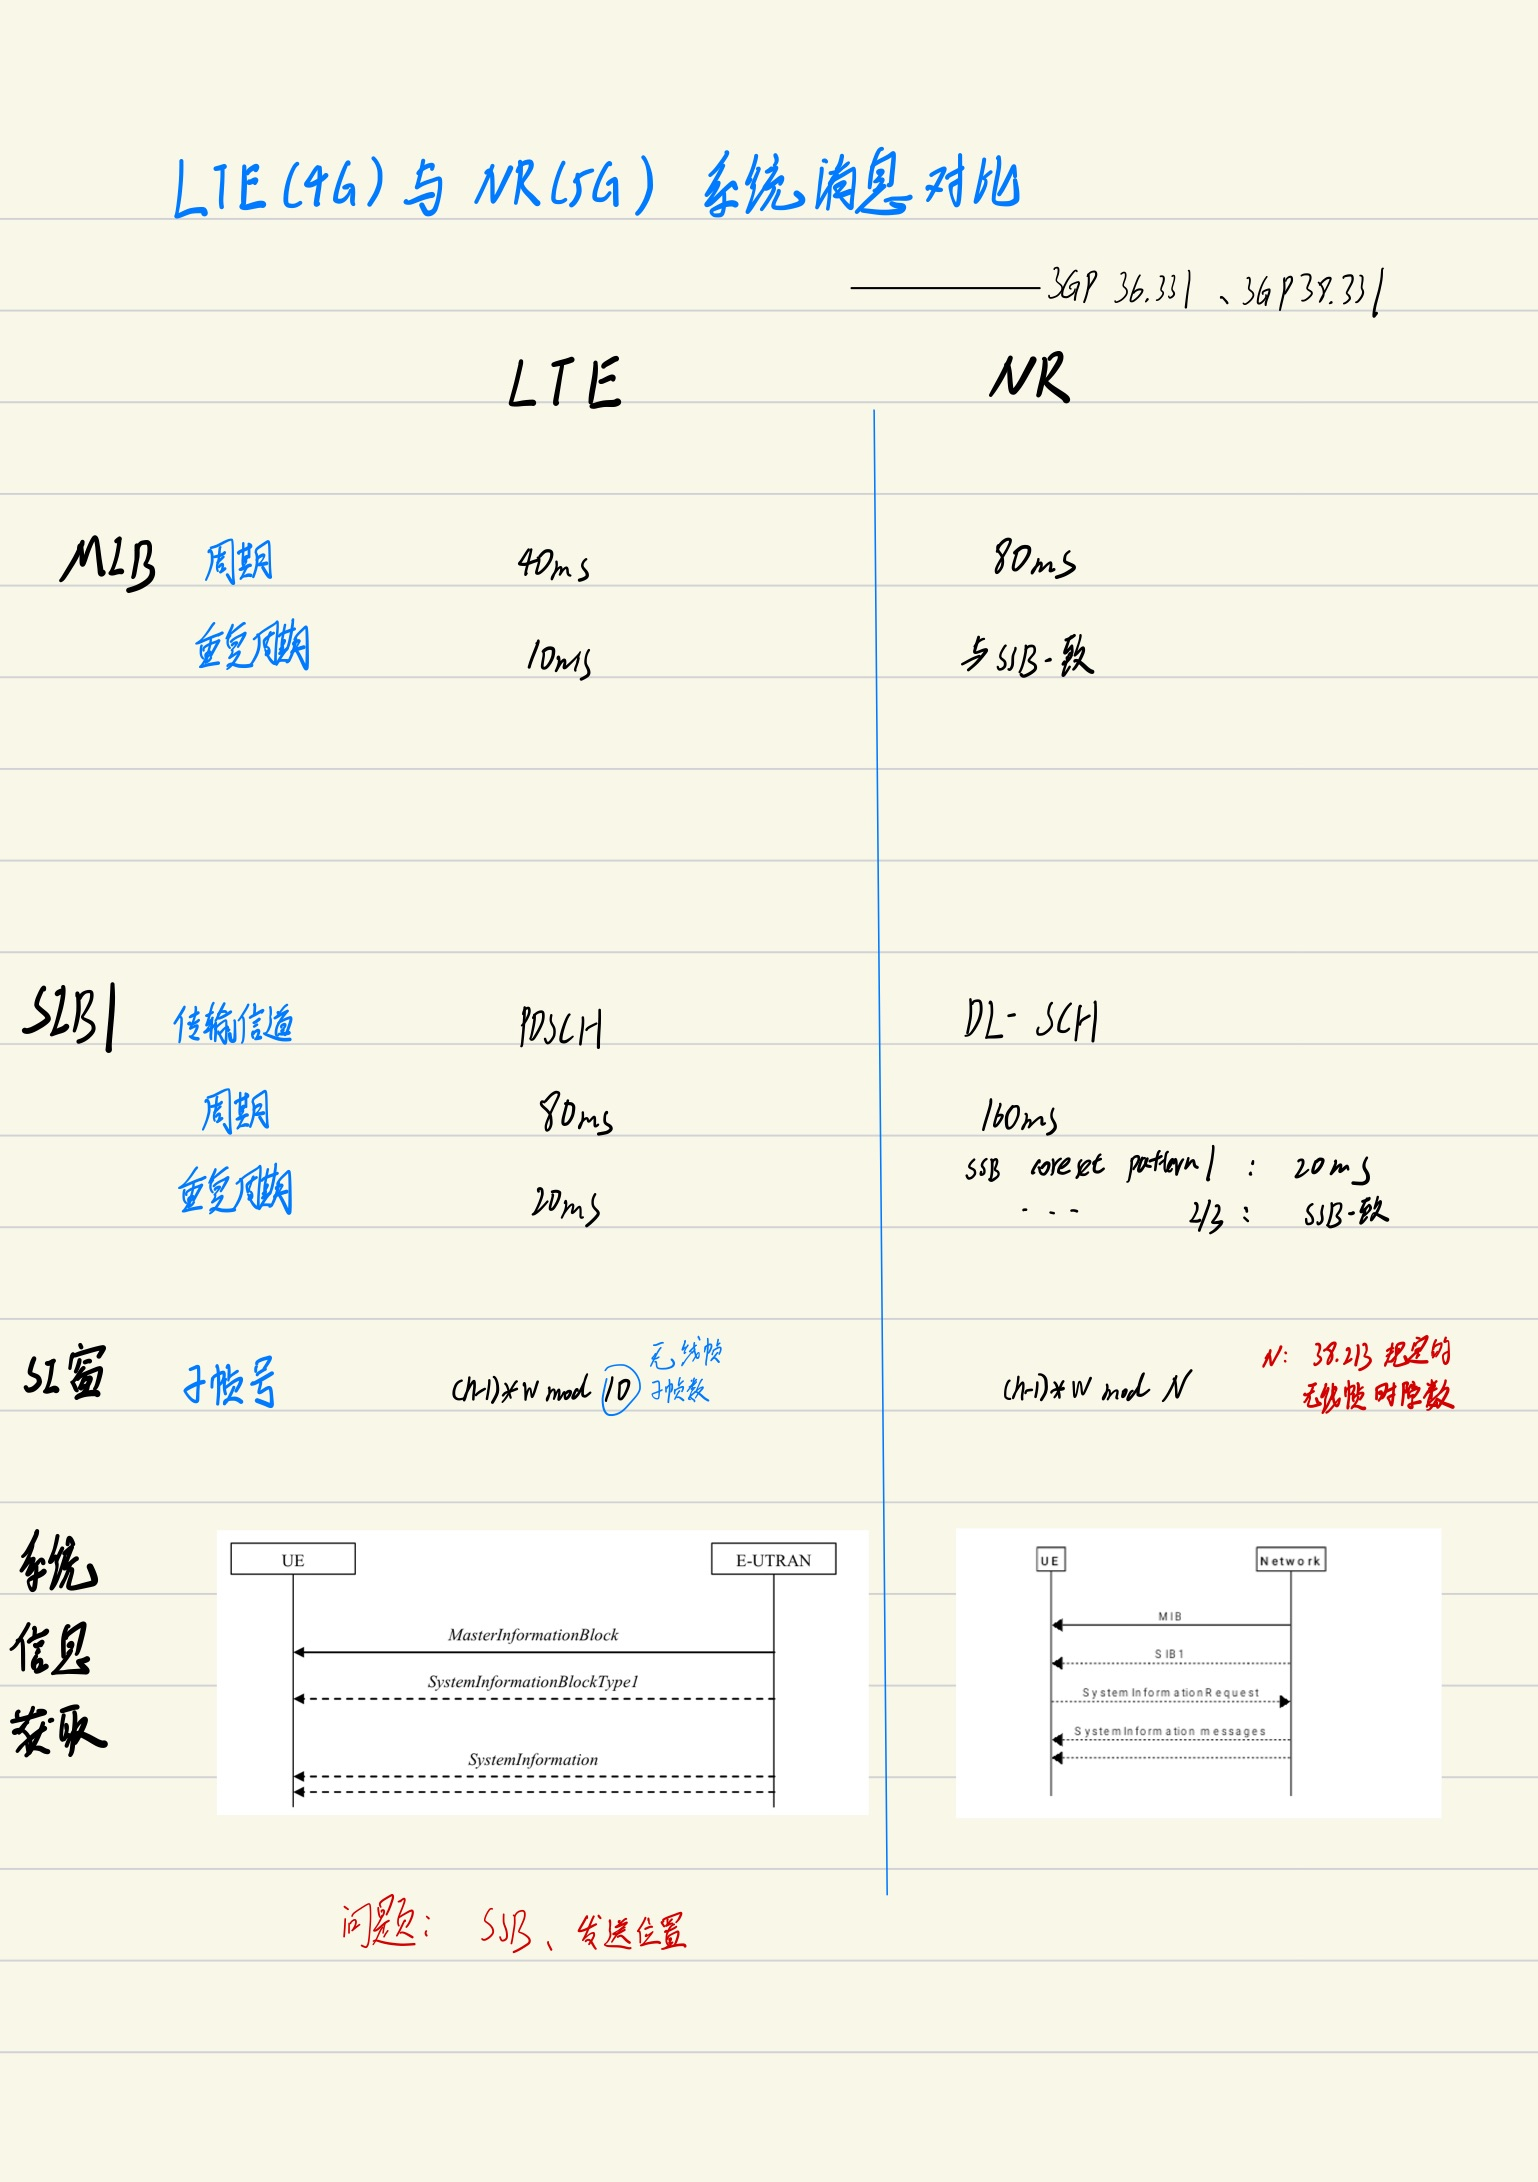 LTE(4G)与NR(5G) 系统消息对比
3GP 36.331、3GP 38.331
LTE NR
MIB 周期 40ms 80ms
重复周期 10ms 与SSB一致
SIB1 传输信道 PDSCH DL-SCH
周期 80ms 160ms
重复周期 20ms SSB coreset pattern1 : 20ms
--- 2/3 : SSB一致
SI窗 子帧号 (n-1)*w mod 10 无线帧 子帧数 (n-1)*w mod N N: 38.213 规定的
无线帧时隙数
系统
信息
获取
UE E-UTRAN
MasterInformationBlock
SystemInformationBlockType1
SystemInformation
UE Network
MIB
SIB1
SystemInformationRequest
SystemInformation messages
问题: SSB、发送位置